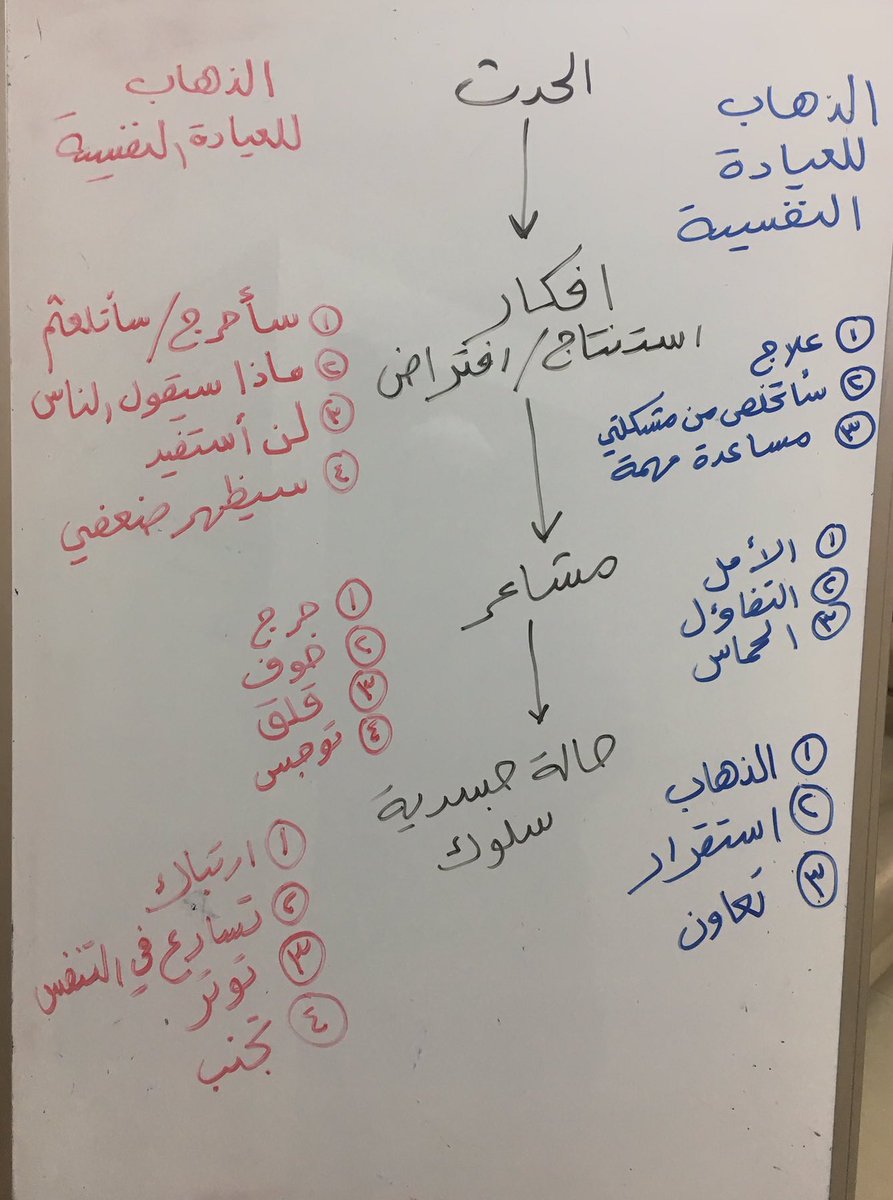 الحدث
افكار
استنتاج/افتراض
مشاعر
حالة جسدية
سلوك
الذهاب
للعيادة
النفسية
١ علاج
٢ سأتخلص من مشكلتي
٣ مساعدة مهمة
١ الأمل
٢ التفاؤل
٣ الحماس
١ الذهاب
٢ استقرار
٣ تعاون
الذهاب
للعيادة النفسية
١ سأحرج/سأتلعثم
٢ ماذا سيقول الناس
٣ لن أستفيد
٤ سيظهر ضعفي
١ حرج
٢ خوف
٣ قلق
٤ توجس
١ ارتباك
٢ تسارع في التنفس
٣ توتر
٤ تجنب